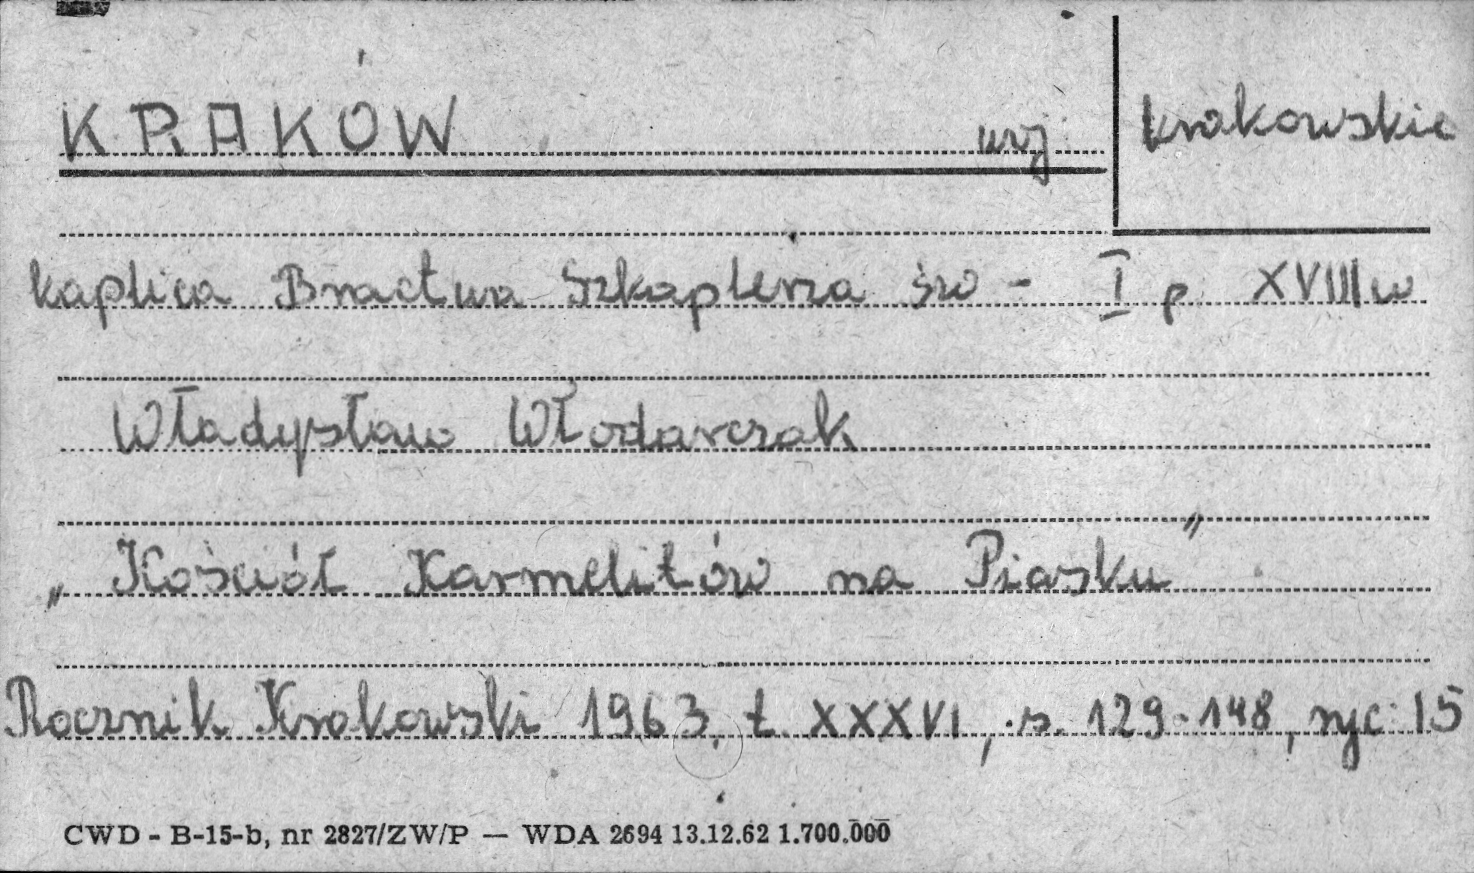 KRAKÓW woj. krakowskie
kaplica Bractwa Szkaplerza św - I p XVIII w
Władysław Włodarczak
„Kościół Karmelitów na Piasku”
Rocznik Krakowski 1963, t. XXXVI, s. 129-148, ryc. 15
CWD - B-15-b, nr 2827/ZW/P — WDA 2694 13.12.62 1.700.000